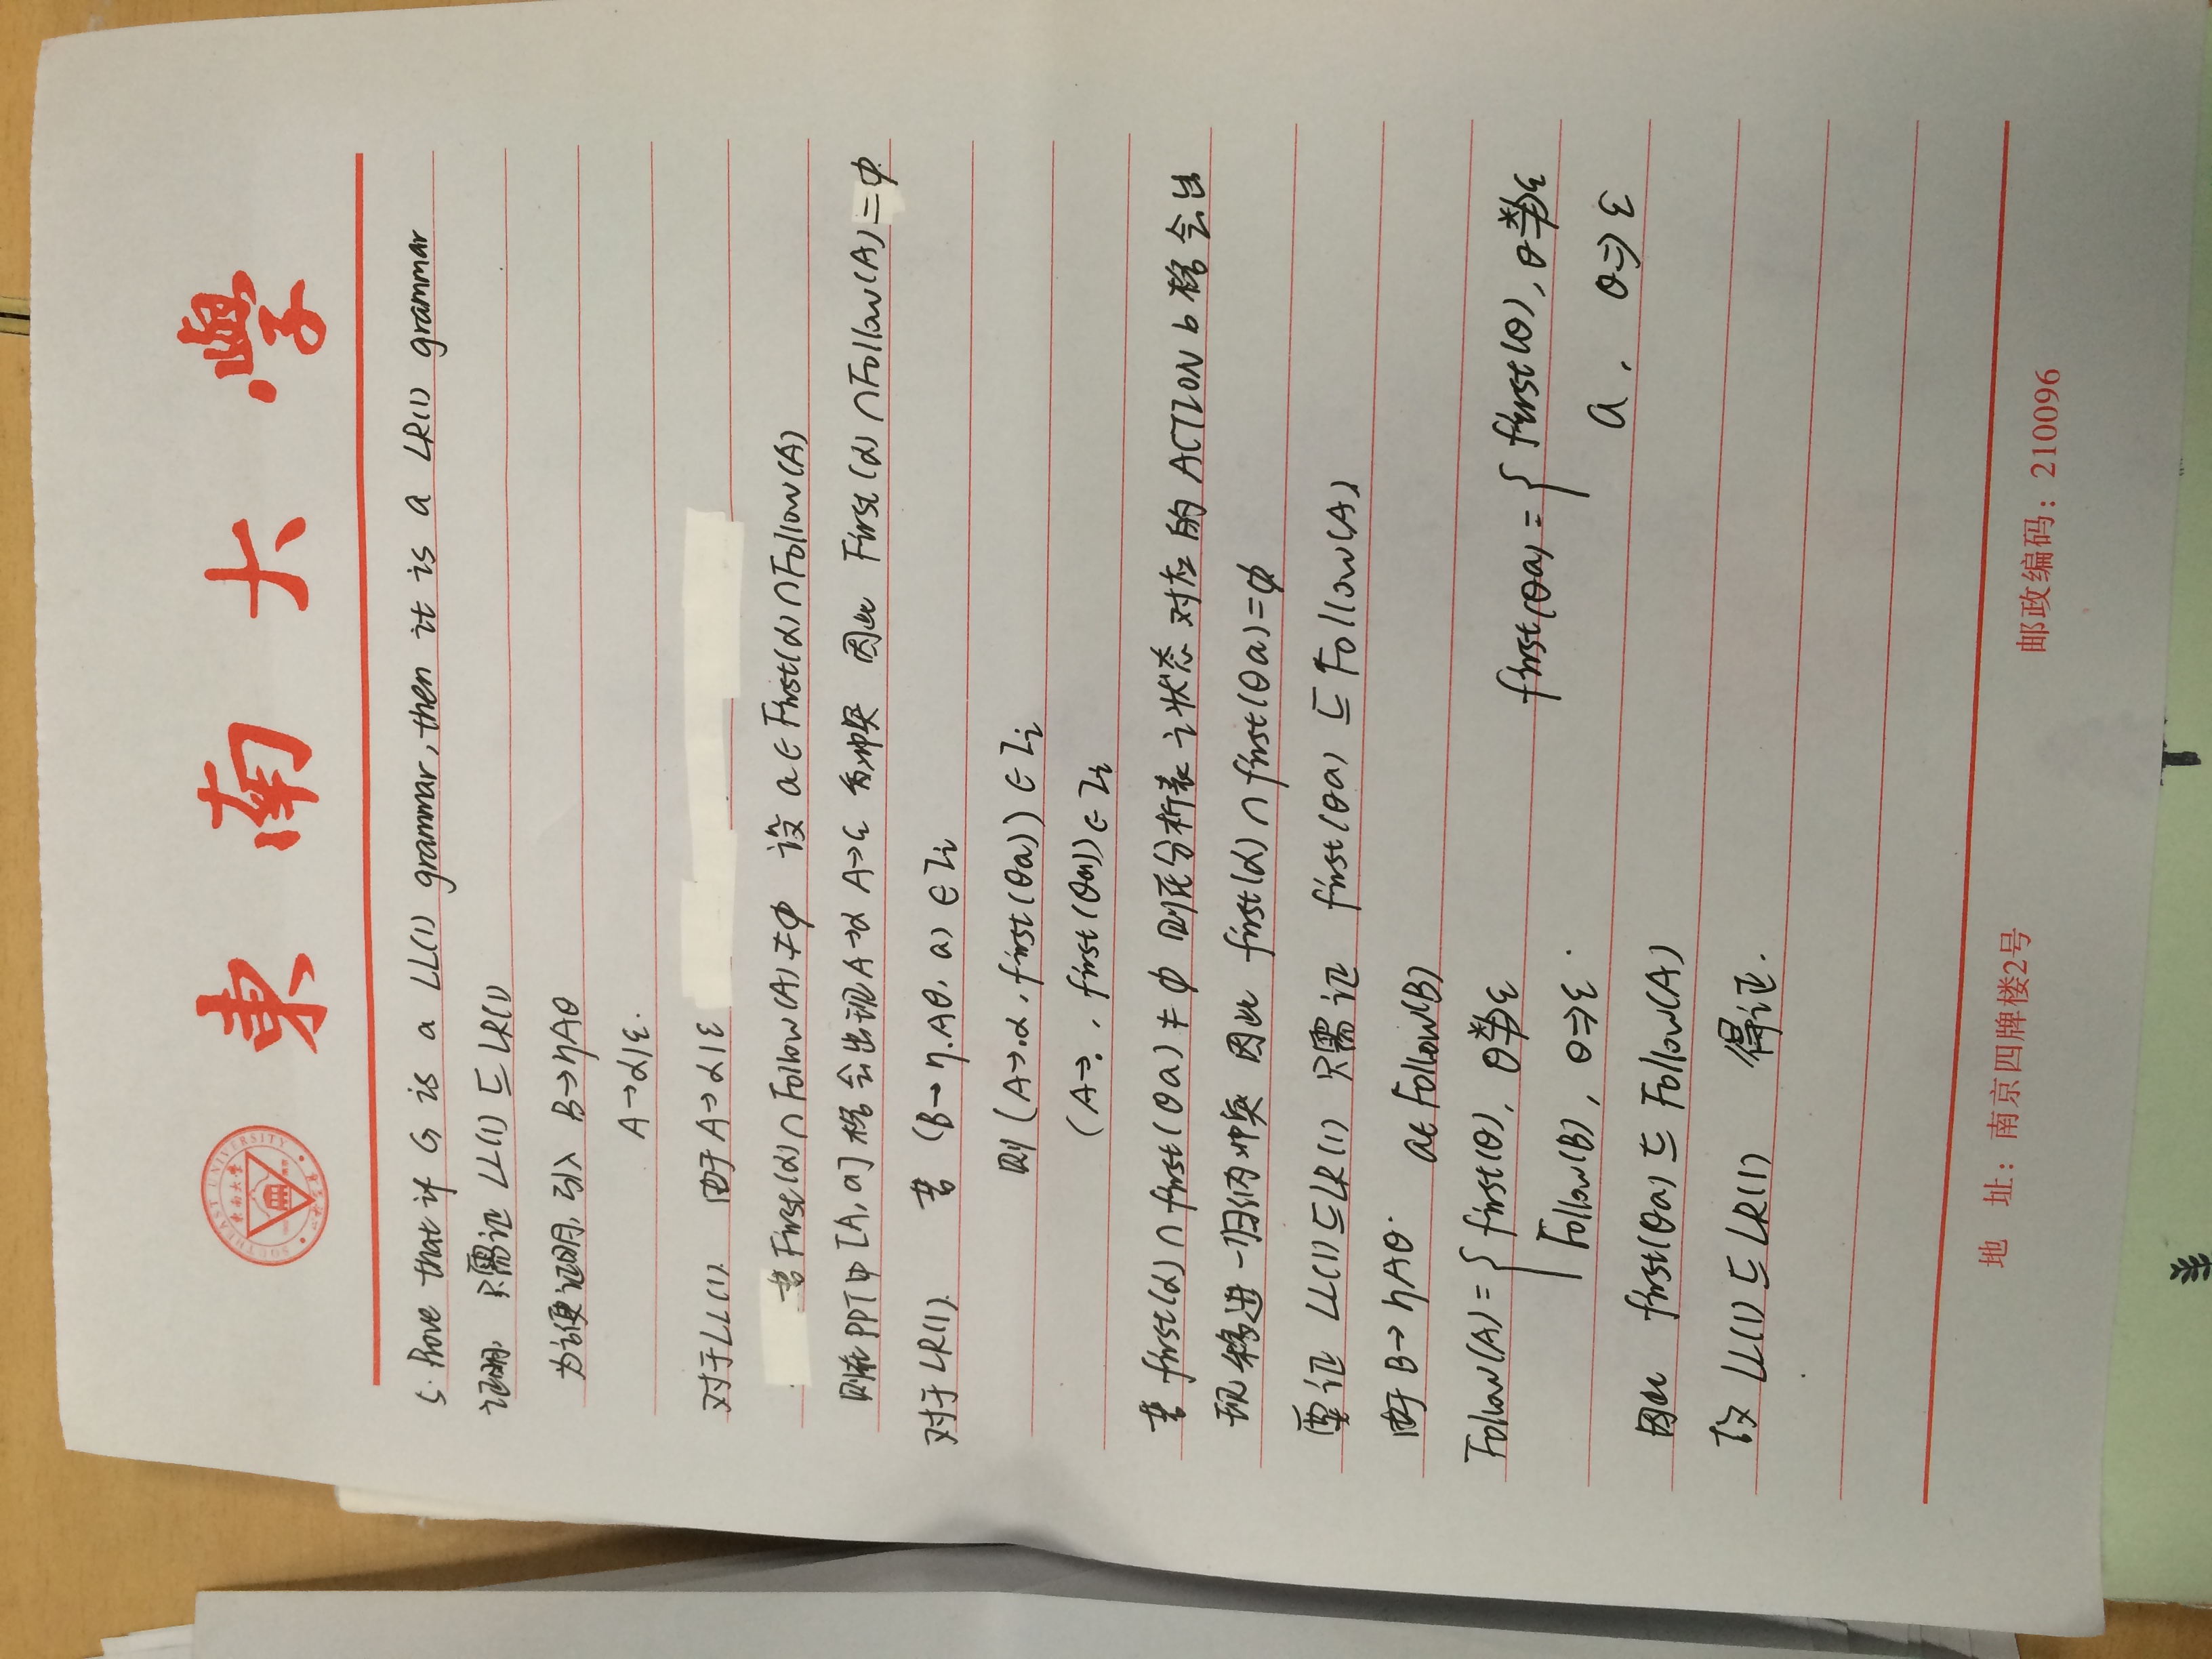 SOUTHEAST UNIVERSITY
東南大學
東南大學
5. Prove that if G is a LL(1) grammar, then it is a LR(1) grammar
证明, 只需证 LL(1) ⊆ LR(1)
为方便证明, 引入 B→ηAθ
A→α|ε.
对于LL(1). 由于 A→α|ε
若First(α)∩Follow(A)≠φ 设 a∈First(α)∩Follow(A)
则在PPT中[A,a]格会出现A→α A→ε 的冲突 因此 First(α)∩Follow(A)=φ.
对于LR(1). 若 (B→η.Aθ, a) ∈Ii
则 (A→.α, first(θa)) ∈ Ii
(A→., first(θa))∈Ii
若 first(α)∩first(θa)≠φ 则在分析表i状态对应的 ACTION b格会出
现移进-归纳冲突 因此 first(α)∩first(θa)=φ
要证 LL(1)⊆LR(1) 只需证 first(θa) ⊆ Follow(A)
由于 B→ηAθ. a∈Follow(B)
Follow(A)={ first(θ), θ*⇏ε first(θa)={ first(θ), θ*⇏ε
Follow(B), θ⇒ε. a, θ⇒ε
因此 first(θa)⊆Follow(A)
故 LL(1)⊆LR(1) 得证.
地 址：南京四牌楼2号 邮政编码：210096